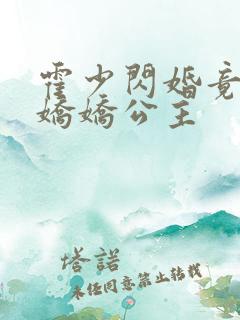 霍少閃婚竟
嬌嬌公主
塔諾
未任同意禁止轉載